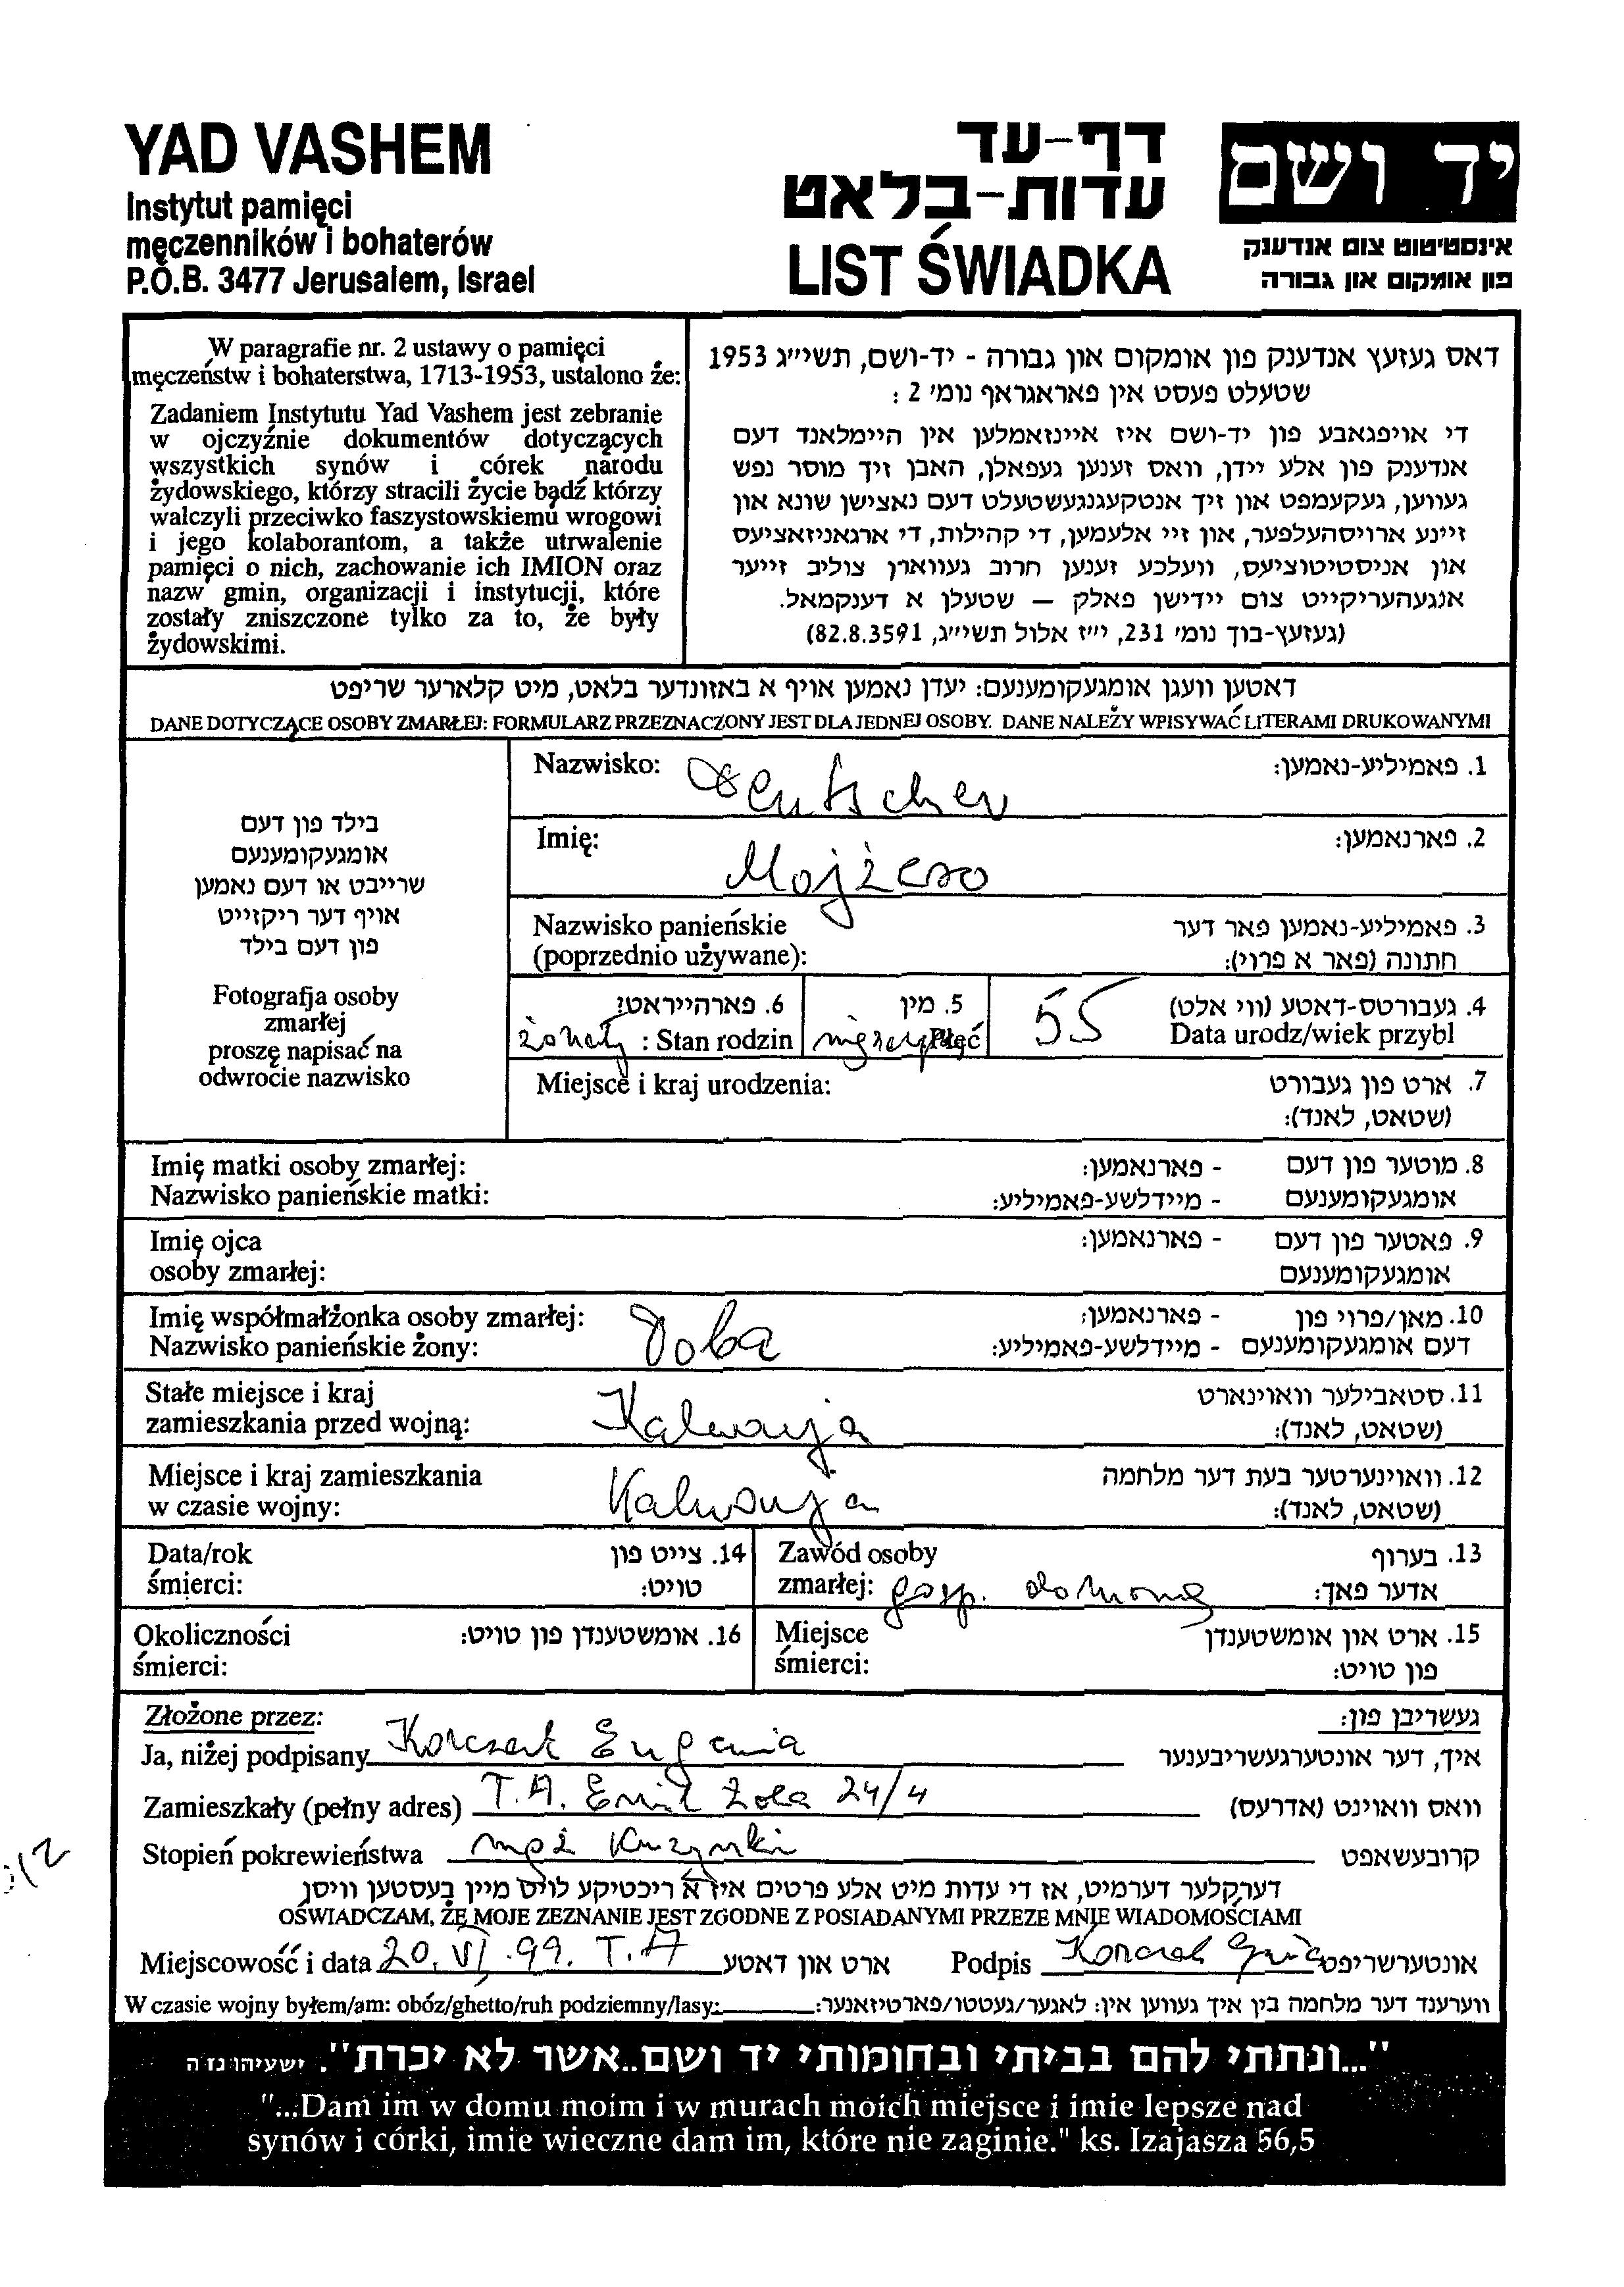 YAD VASHEM
Instytut pamięci
męczenników i bohaterów
P.O.B. 3477 Jerusalem, Israel
דף-עד
עדות-בלאט
LIST ŚWIADKA
יד ושם
אינסטיטוט צום אנדענק
פון אומקום און גבורה
W paragrafie nr. 2 ustawy o pamięci
męczeństw i bohaterstwa, 1713-1953, ustalono że:
Zadaniem Instytutu Yad Vashem jest zebranie
w ojczyźnie dokumentów dotyczących
wszystkich synów i córek narodu
żydowskiego, którzy stracili życie bądź którzy
walczyli przeciwko faszystowskiemu wrogowi
i jego kolaborantom, a także utrwalenie
pamięci o nich, zachowanie ich IMION oraz
nazw gmin, organizacji i instytucji, które
zostały zniszczone tylko za to, że były
żydowskimi.
דאס געזעץ אנדענק פון אומקום און גבורה - יד-ושם, תשי״ג 1953
שטעלט פעסט אין פאראגראף נומ׳ 2 :
די אויפגאבע פון יד-ושם איז איינזאמלען אין היימלאנד דעם
אנדענק פון אלע יידן, וואס זענען געפאלן, האבן זיך מוסר נפש
געווען, געקעמפט און זיך אנטקעגנגעשטעלט דעם נאצישן שונא און
זיינע ארויסהעלפער, און זיי אלעמען, די קהילות, די ארגאניזאציעס
און אניסטיטוציעס, וועלכע זענען חרוב געווארן צוליב זייער
אנגעהעריקייט צום יידישן פאלק – שטעלן א דענקמאל.
(געזעץ-בוך נומ׳ 231, י״ז אלול תשי״ג, 82.8.3591)
דאטען וועגן אומגעקומענעם: יעדן נאמען אויף א באזונדער בלאט, מיט קלארער שריפט
DANE DOTYCZĄCE OSOBY ZMARŁEJ: FORMULARZ PRZEZNACZONY JEST DLA JEDNEJ OSOBY. DANE NALEŻY WPISYWAĆ LITERAMI DRUKOWANYMI
בילד פון דעם
אומגעקומענעם
שרייבט או דעם נאמען
אויף דער ריקזייט
פון דעם בילד
Fotografja osoby
zmarłej
proszę napisać na
odwrocie nazwisko
Nazwisko: Deutscher 1. פאמיליע-נאמען:
Imię: Mojżesz 2. פארנאמען:
Nazwisko panieńskie 3. פאמיליע-נאמען פאר דער
(poprzednio używane): חתונה (פאר א פרוי):
6. פארהייראט: 5. מין 55 4. געבורטס-דאטע (ווי אלט)
żonaty : Stan rodzin mężczyzna Płęć Data urodz/wiek przybl
Miejsce i kraj urodzenia: 7. ארט פון געבורט
(שטאט, לאנד):
Imię matki osoby zmarłej: - פארנאמען: 8. מוטער פון דעם
Nazwisko panieńskie matki: - מיידלשע-פאמיליע: אומגעקומענעם
Imię ojca - פארנאמען: 9. פאטער פון דעם
osoby zmarłej: אומגעקומענעם
Imię współmałżonka osoby zmarłej: Doba - פארנאמען: 10. מאן/פרוי פון
Nazwisko panieńskie żony: - מיידלשע-פאמיליע: דעם אומגעקומענעם
Stałe miejsce i kraj 11. סטאבילער וואוינארט
zamieszkania przed wojną: Kalwarja (שטאט, לאנד):
Miejsce i kraj zamieszkania 12. וואוינערטער בעת דער מלחמה
w czasie wojny: Kalwarja (שטאט, לאנד):
Data/rok 14. צייט פון Zawód osoby 13. בערוף
śmierci: טויט: zmarłej: gosp. domowa אדער פאך:
Okoliczności 16. אומשטענדן פון טויט: Miejsce 15. ארט און אומשטענדן
śmierci: śmierci: פון טויט:
Złożone przez: געשריבן פון:
Ja, niżej podpisany Korczak Eugenia איך, דער אונטערגעשריבענער
Zamieszkały (pełny adres) T.A. Emil Zola 24/4 וואס וואוינט (אדרעס)
Stopień pokrewieństwa mąż Kuzynki קרובעשאפט
דערקלער דערמיט, אז די עדות מיט אלע פרטים איז א ריכטיקע לויט מיין בעסטען וויסן
OŚWIADCZAM, ŻE MOJE ZEZNANIE JEST ZGODNE Z POSIADANYMI PRZEZE MNIE WIADOMOŚCIAMI
Miejscowość i data 20.VI.99. T.A ארט און דאטע Podpis Korczak אונטערשריפט
W czasie wojny byłem/am: obóz/ghetto/ruh podziemny/lasy: ווערענד דער מלחמה בין איך געווען אין: לאגער/געטטו/פארטיזאנער:
"...ונתתי להם בביתי ובחומותי יד ושם..אשר לא יכרת". ישעיהו נז ה
"...Dam im w domu moim i w murach moich miejsce i imie lepsze nad
synów i córki, imie wieczne dam im, które nie zaginie." ks. Izajasza 56,5